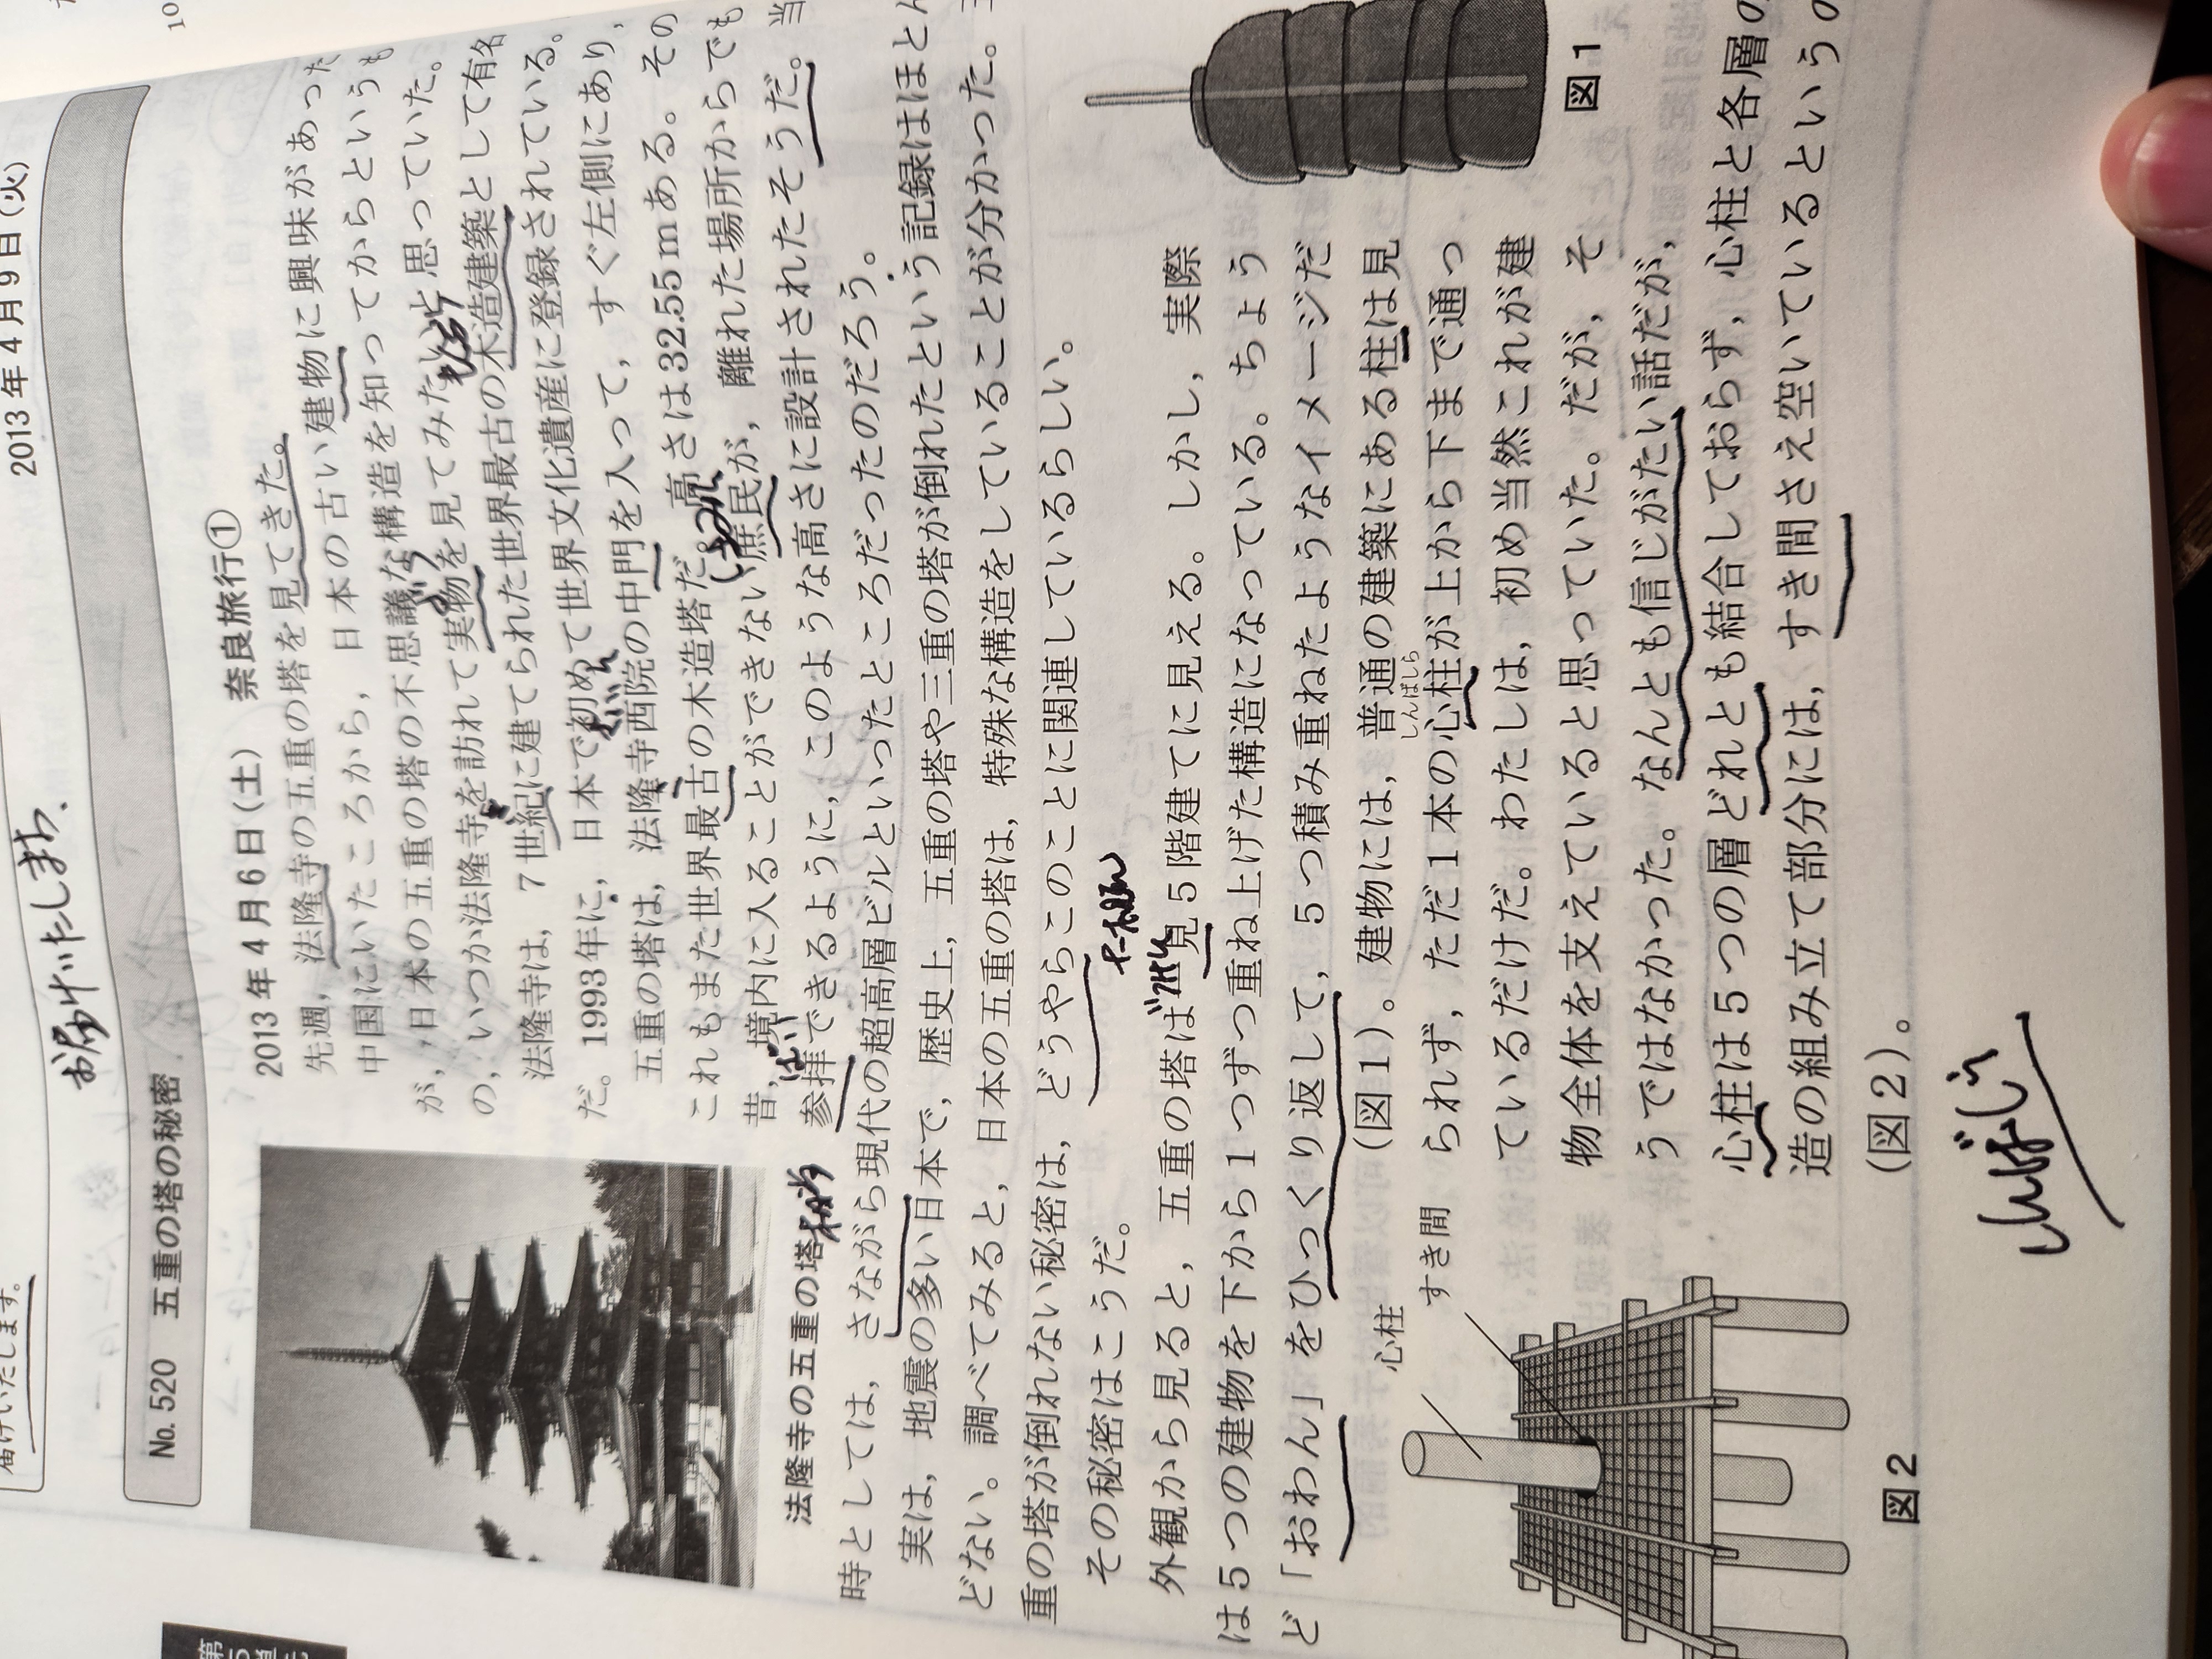 2013年4月9日(火)
届けいたします。
お届けいたします.
No. 520 五重の塔の秘密
2013年4月6日(土) 奈良旅行①
先週，法隆寺の五重の塔を見てきた。
中国にいたころから，日本の古い建物に興味があった
が，日本の五重の塔の不思議な構造を知ってからというも
の，いつか法隆寺を訪れて実物を見てみたいと思っていた。
法隆寺は，7世紀に建てられた世界最古の木造建築として有名
だ。1993年に，日本で初めて世界文化遺産に登録されている。
五重の塔は，法隆寺西院の中門を入って，すぐ左側にあり，
これもまた世界最古の木造塔だ。高さは32.55mある。その
昔，境内に入ることができない庶民が，離れた場所からでも
参拝できるように，このような高さに設計されたそうだ。当
法隆寺の五重の塔
時としては，さながら現代の超高層ビルといったところだったのだろう。
実は，地震の多い日本で，歴史上，五重の塔や三重の塔が倒れたという記録はほとん
どない。調べてみると，日本の五重の塔は，特殊な構造をしていることが分かった。
重の塔が倒れない秘密は，どうやらこのことに関連しているらしい。
その秘密はこうだ。
外観から見ると，五重の塔は一見5階建てに見える。しかし，実際
は5つの建物を下から1つずつ重ね上げた構造になっている。ちょう
ど「おわん」をひっくり返して，5つ積み重ねたようなイメージだ
(図1)。建物には，普通の建築にある柱は見
しんばしら
られず，ただ1本の心柱が上から下まで通っ
ているだけだ。わたしは，初め当然これが建
物全体を支えていると思っていた。だが，そ
うではなかった。なんとも信じがたい話だが，
心柱は5つの層どれとも結合しておらず，心柱と各層の
造の組み立て部分には，すき間さえ空いているという
(図2)。
図1
心柱
すき間
図2
しんばしら